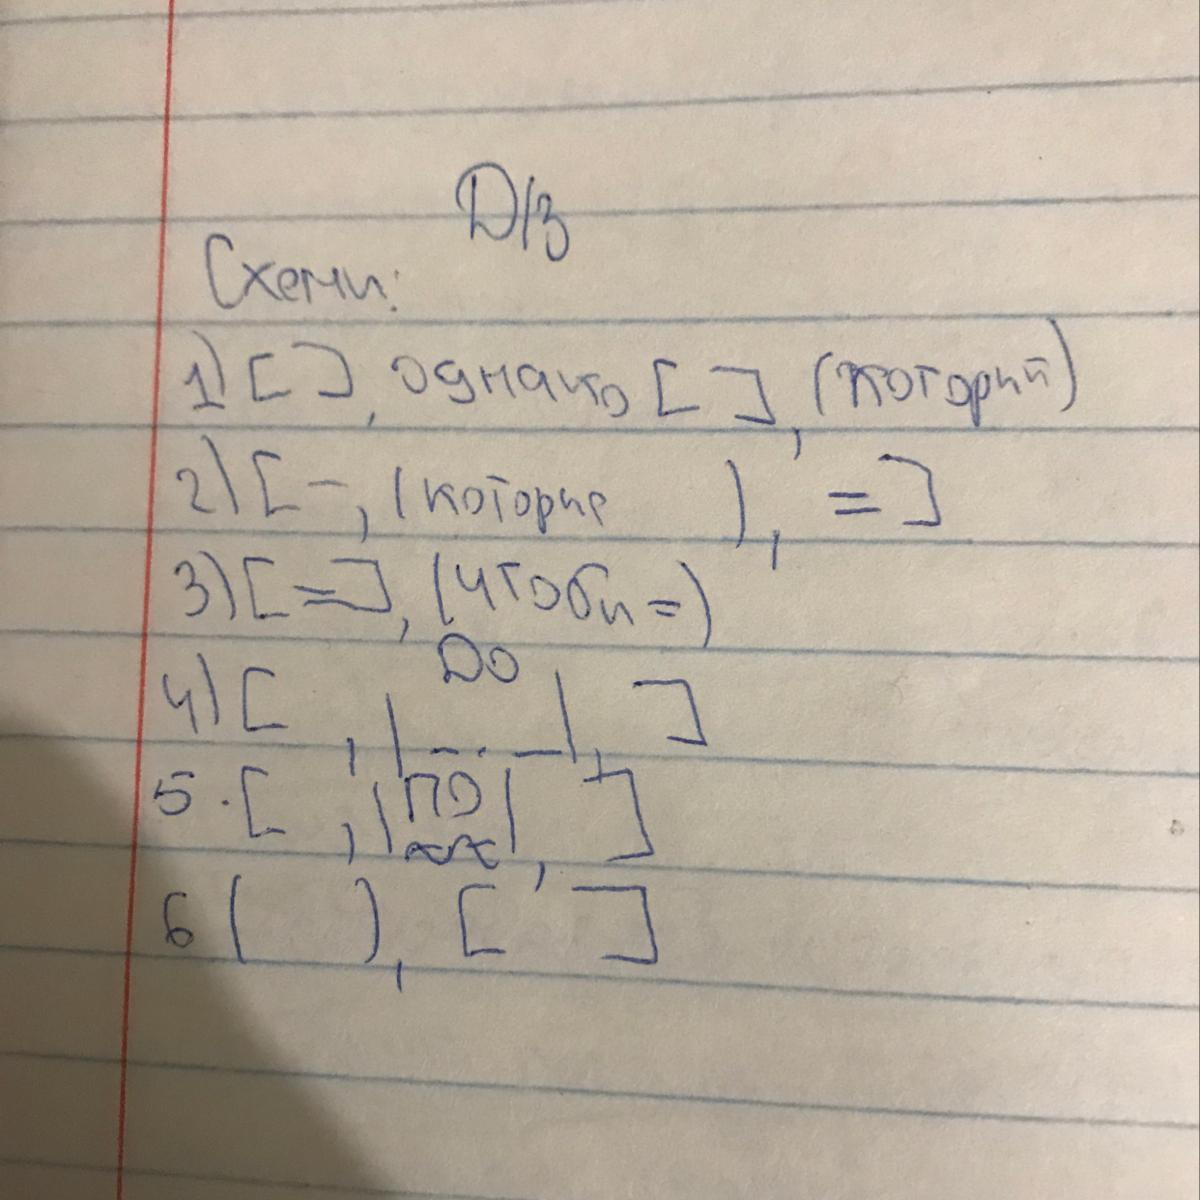 Д/з
Схеми:
1) [ ], однако [ ], (который)
2) [–, (которые ), =]
3) [=], (чтоби =)
4) [ , |ДО _._|, ]
5. [ , |ПО|, ]
6 ( ), [ ]